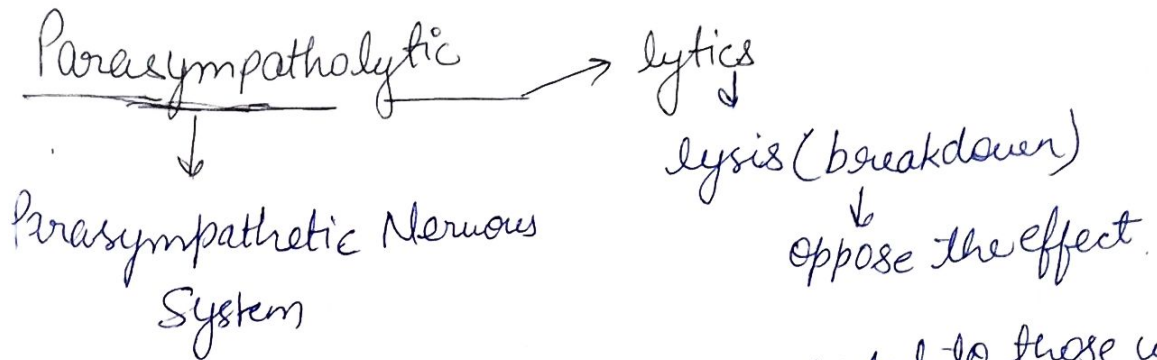 Parasympatholytic → lytics
↓
lysis (breakdown)
↓
oppose the effect.
↓
Parasympathetic Nervous
System
to those